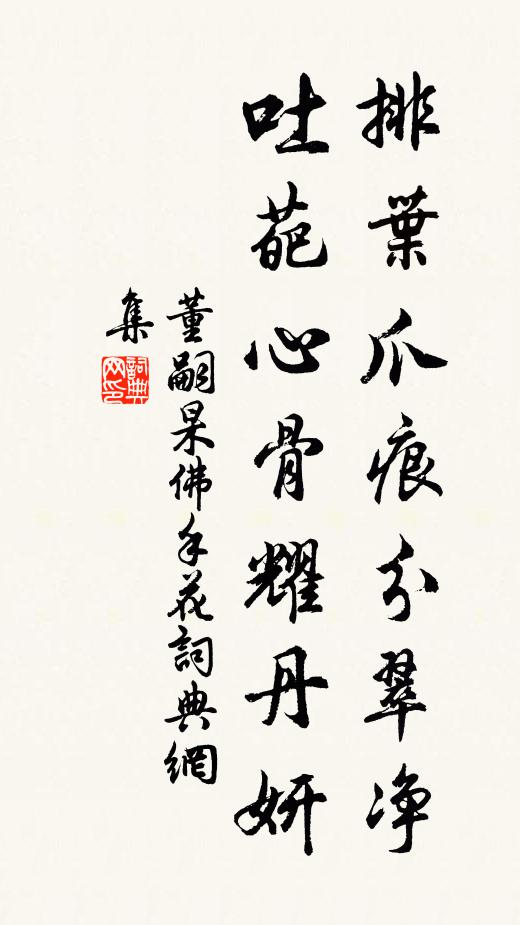 排葉爪痕分翠净
吐葩心骨耀丹妍
董嗣杲佛手花詞典網
集
詞典
网印